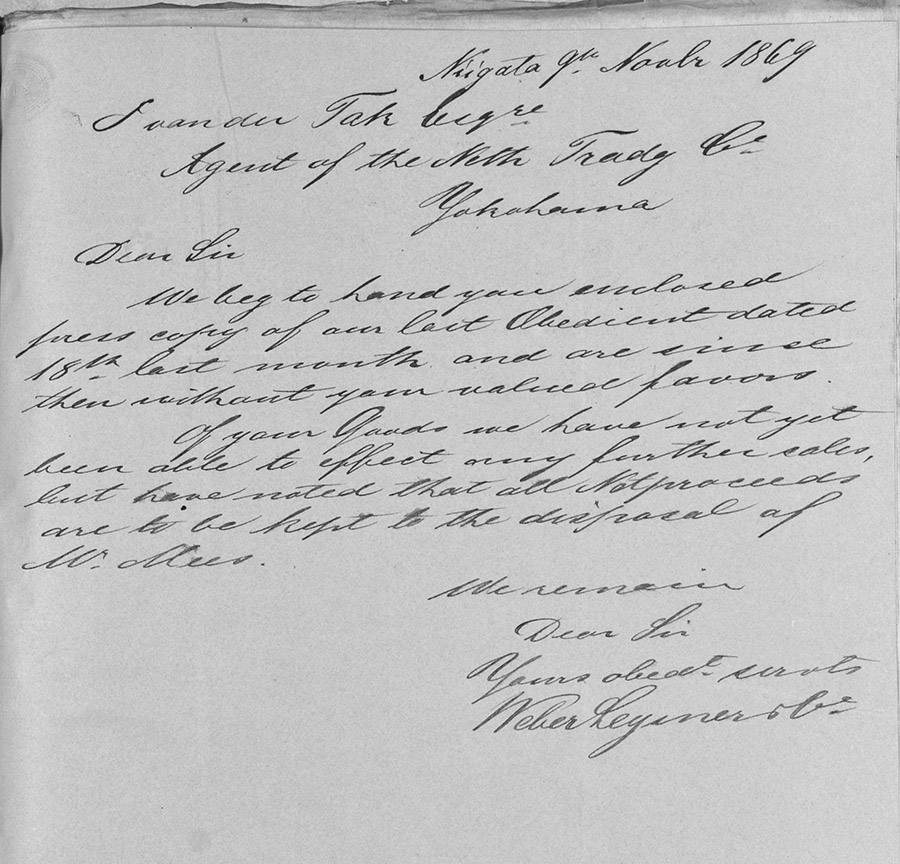 Niigata 9th Novbr 1869
J van der Tak Esqre
Agent of the Neth Tradg Co
Yokohama
Dear Sir
We beg to hand you enclosed
press copy of our last Obedient dated
18th last month and are since
then without your valued favors.
Of your Goods we have not yet
been able to effect any further sales,
but have noted that all Netproceeds
are to be kept to the disposal of
Mr. Mees.
We remain
Dear Sir
Yours obedt servts
Weber Leysner & Co